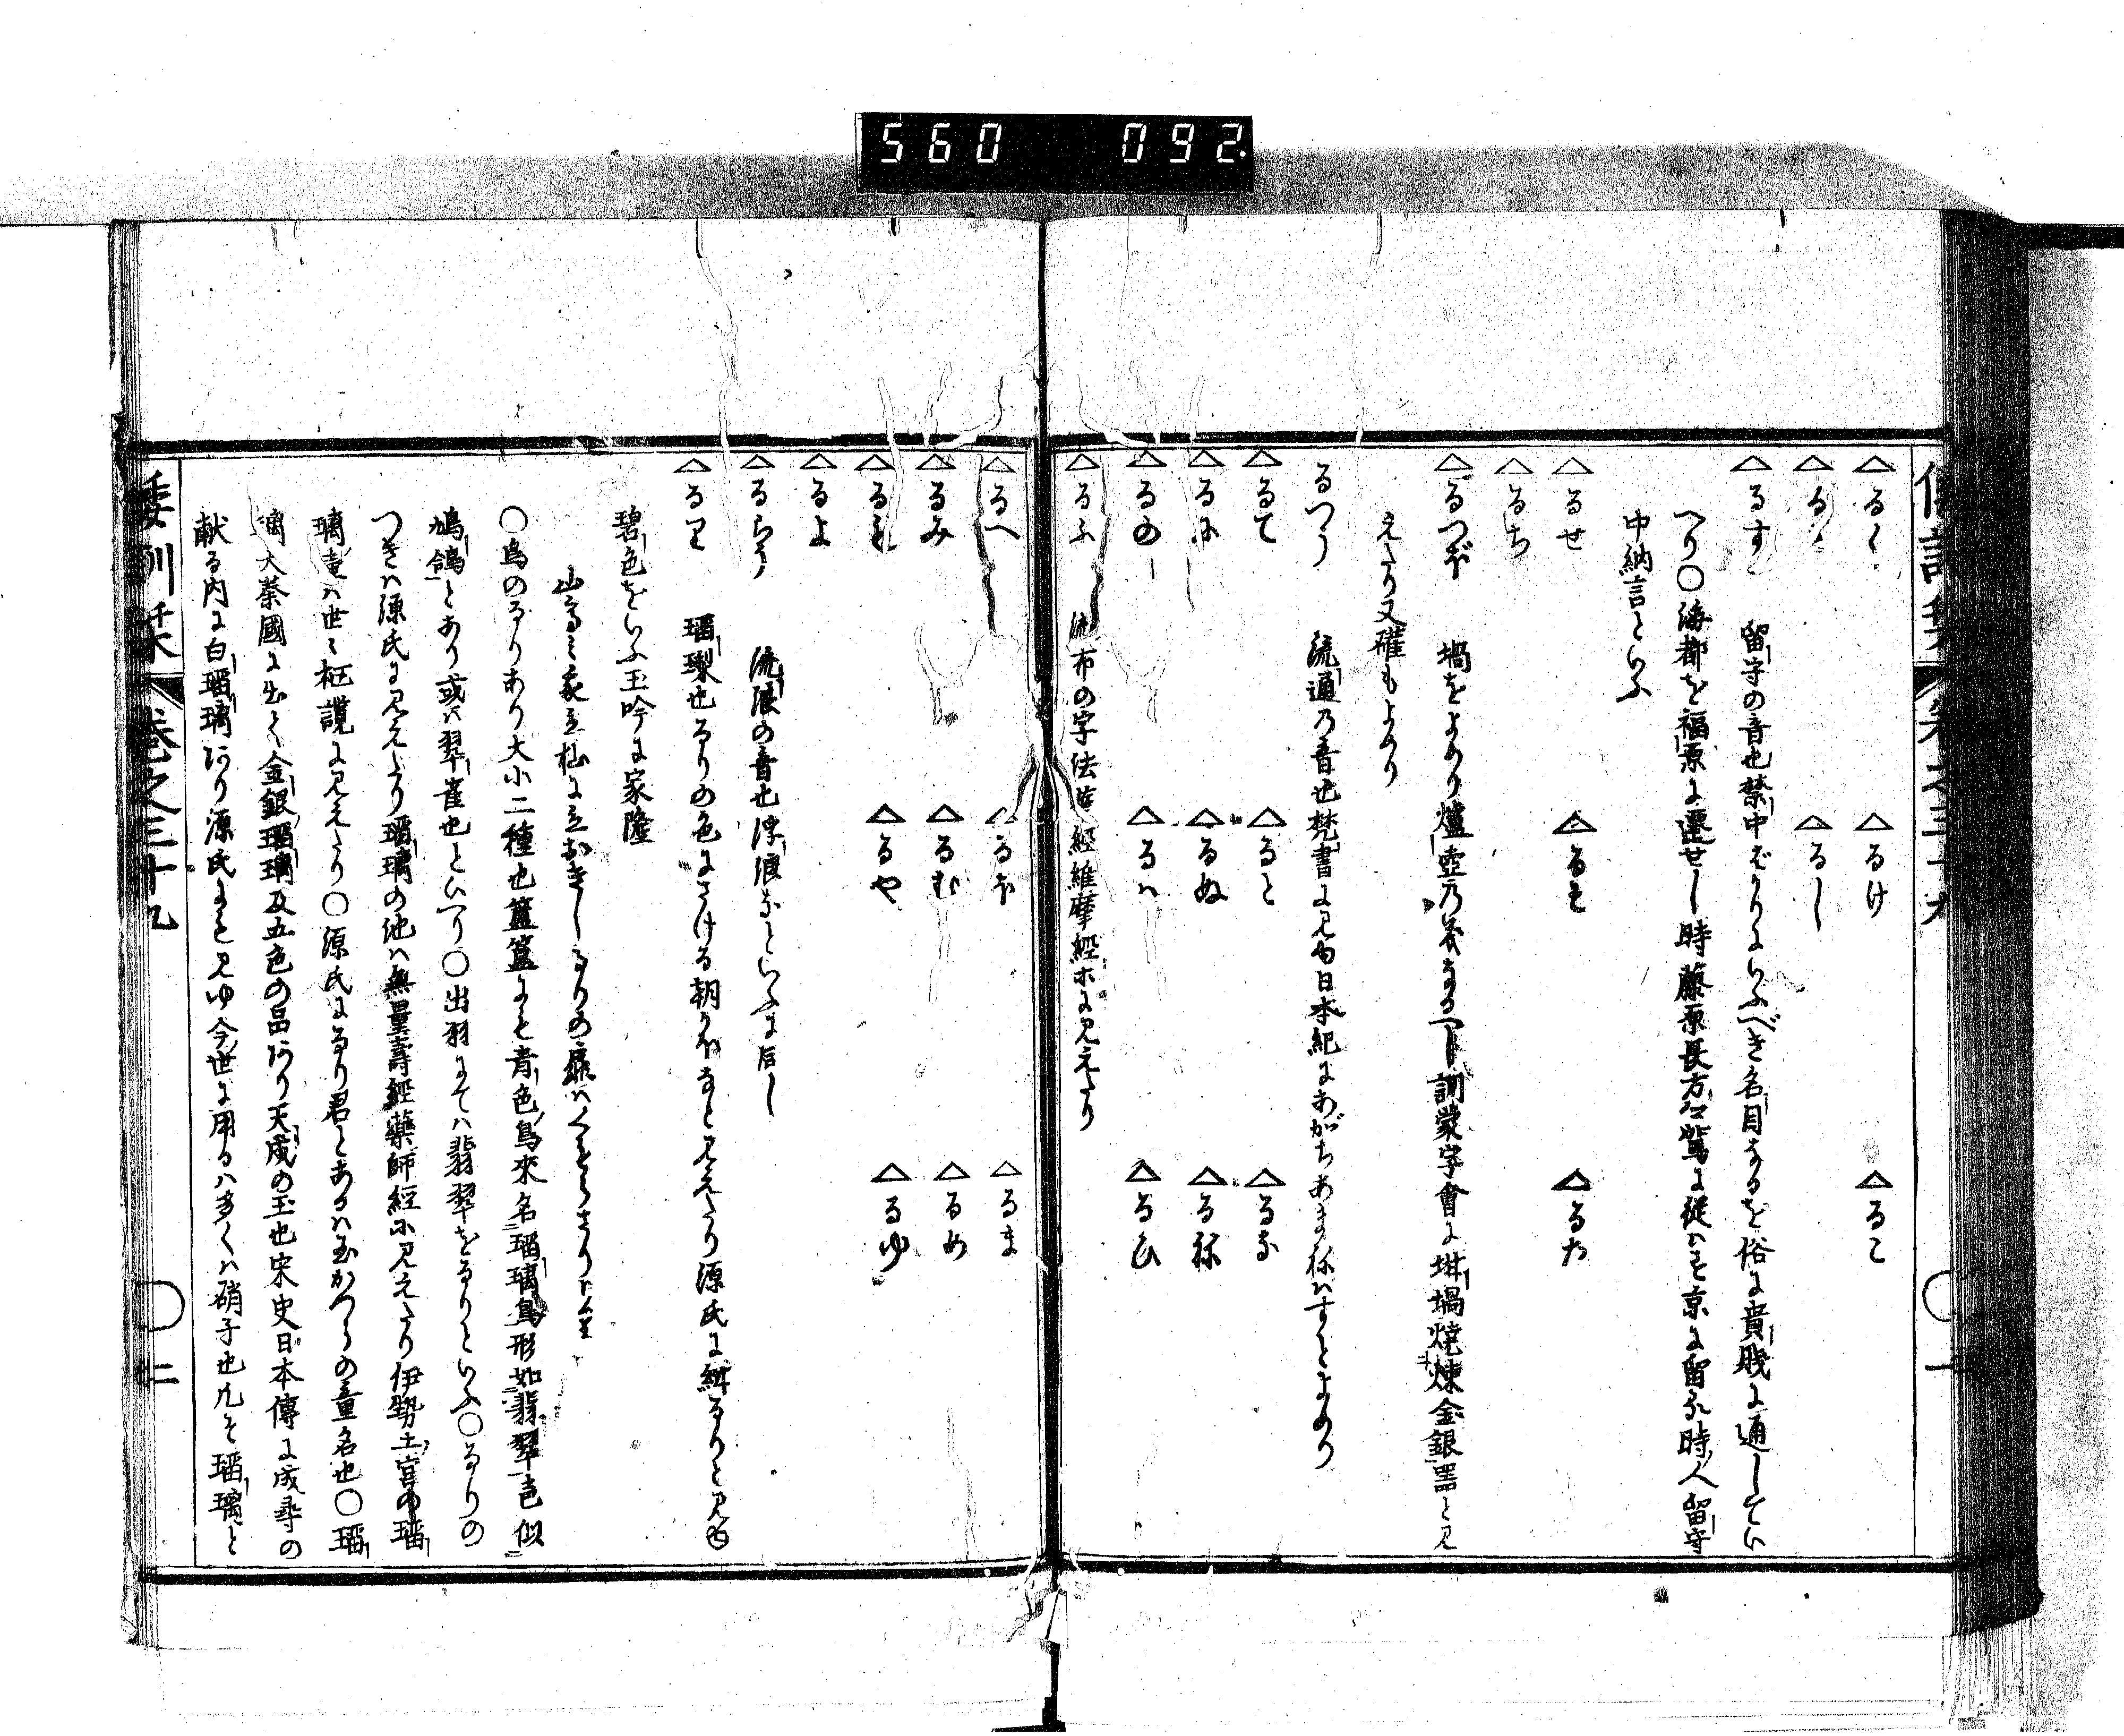 560 092
△るく △るけ △るこ
△るさ △るし
△るす 留守の音也禁中ばかりにいふべき名目なるを俗に貴賤に通してい
へり○海都を福原に遷せし時藤原長方公駕に従はず京に留る時人留守
中納言といふ
△るせ △るそ △るた
△るち
△るつぼ 堝をよめり爐壺乃義なるべし訓蒙字會に坩堝焼煉金銀器と見
えたり又礶もよめり
るつう 流通乃音也梵書に見ゆ日本紀にあがちあまねはすとよめり
△るて △ると △るな
△るに △るぬ △るね
△るの △るは △るひ
△るふ 流布の字法華經維摩經ホに見えたり
△るへ △るほ △るま
△るみ △るむ △るめ
△るも △るや △るゆ
△るよ
△るらう 流浪の音也浮浪などいふに同し
△るり 瑠璃也るりの色にさける朝かほなと見えたり源氏に紺るりと見ゆ
碧色をいふ玉吟に家隆
○鳥のるりあり大小二種也簠簋にも青色鳥來名瑠璃鳥形如翡翠色似
鳩鴿とあり或は翠雀也といへり○出羽にては翡翠をるりといふ○るりの
つきは源氏に見えたり瑠璃の地は無量壽經藥師經ホに見えたり伊勢土宮の瑠
璃壺は世々柾諚に見えたり○源氏にるり君とあるは玉かつらの童名也○瑠
璃大秦國に出て金銀瑠璃及五色の品あり天成の玉也宋史日本傳に成尋の
献る内に白瑠璃あり源氏にも見ゆ今世に用るは多くは硝子也凡そ瑠璃と
倭訓栞 巻之三十九 二